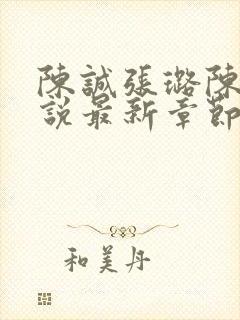 陳誠張璐陳
說最新章節
和美丹